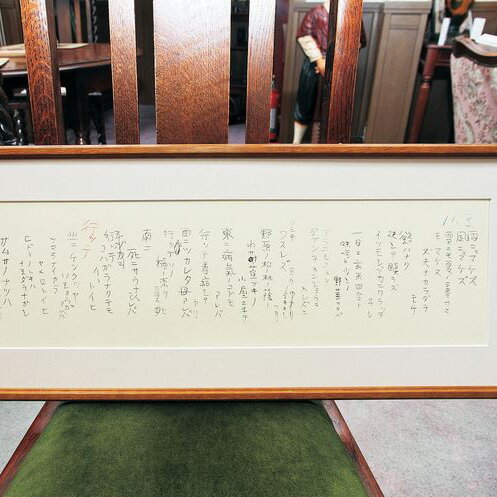 11.3.
雨ニモマケズ
風ニモマケズ
雪ニモ夏ノ暑サニモマケヌ
丈夫ナカラダヲモチ
慾ハナク
決シテ瞋ラズ
イツモシヅカニワラッテヰル
一日ニ玄米四合ト
味噌ト少シノ野菜ヲタベ
アラユルコトヲ
ジブンヲカンジョウニ入レズニ
ヨクミキキシワカリ
ソシテワスレズ
野原ノ松ノ林ノ蔭ノ
小サナ萱ブキノ小屋ニヰテ
東ニ病気ノコドモアレバ
行ッテ看病シテヤリ
西ニツカレタ母アレバ
行ッテソノ稲ノ束ヲ負ヒ
南ニ
死ニサウナ人アレバ
行ッテコハガラナクテモイヽトイヒ
行ッテ
北ニケンクヮヤソショウガアレバ
ツマラナイカラヤメロトイヒ
ヒドリノトキハナミダヲナガシ
サムサノナツハ